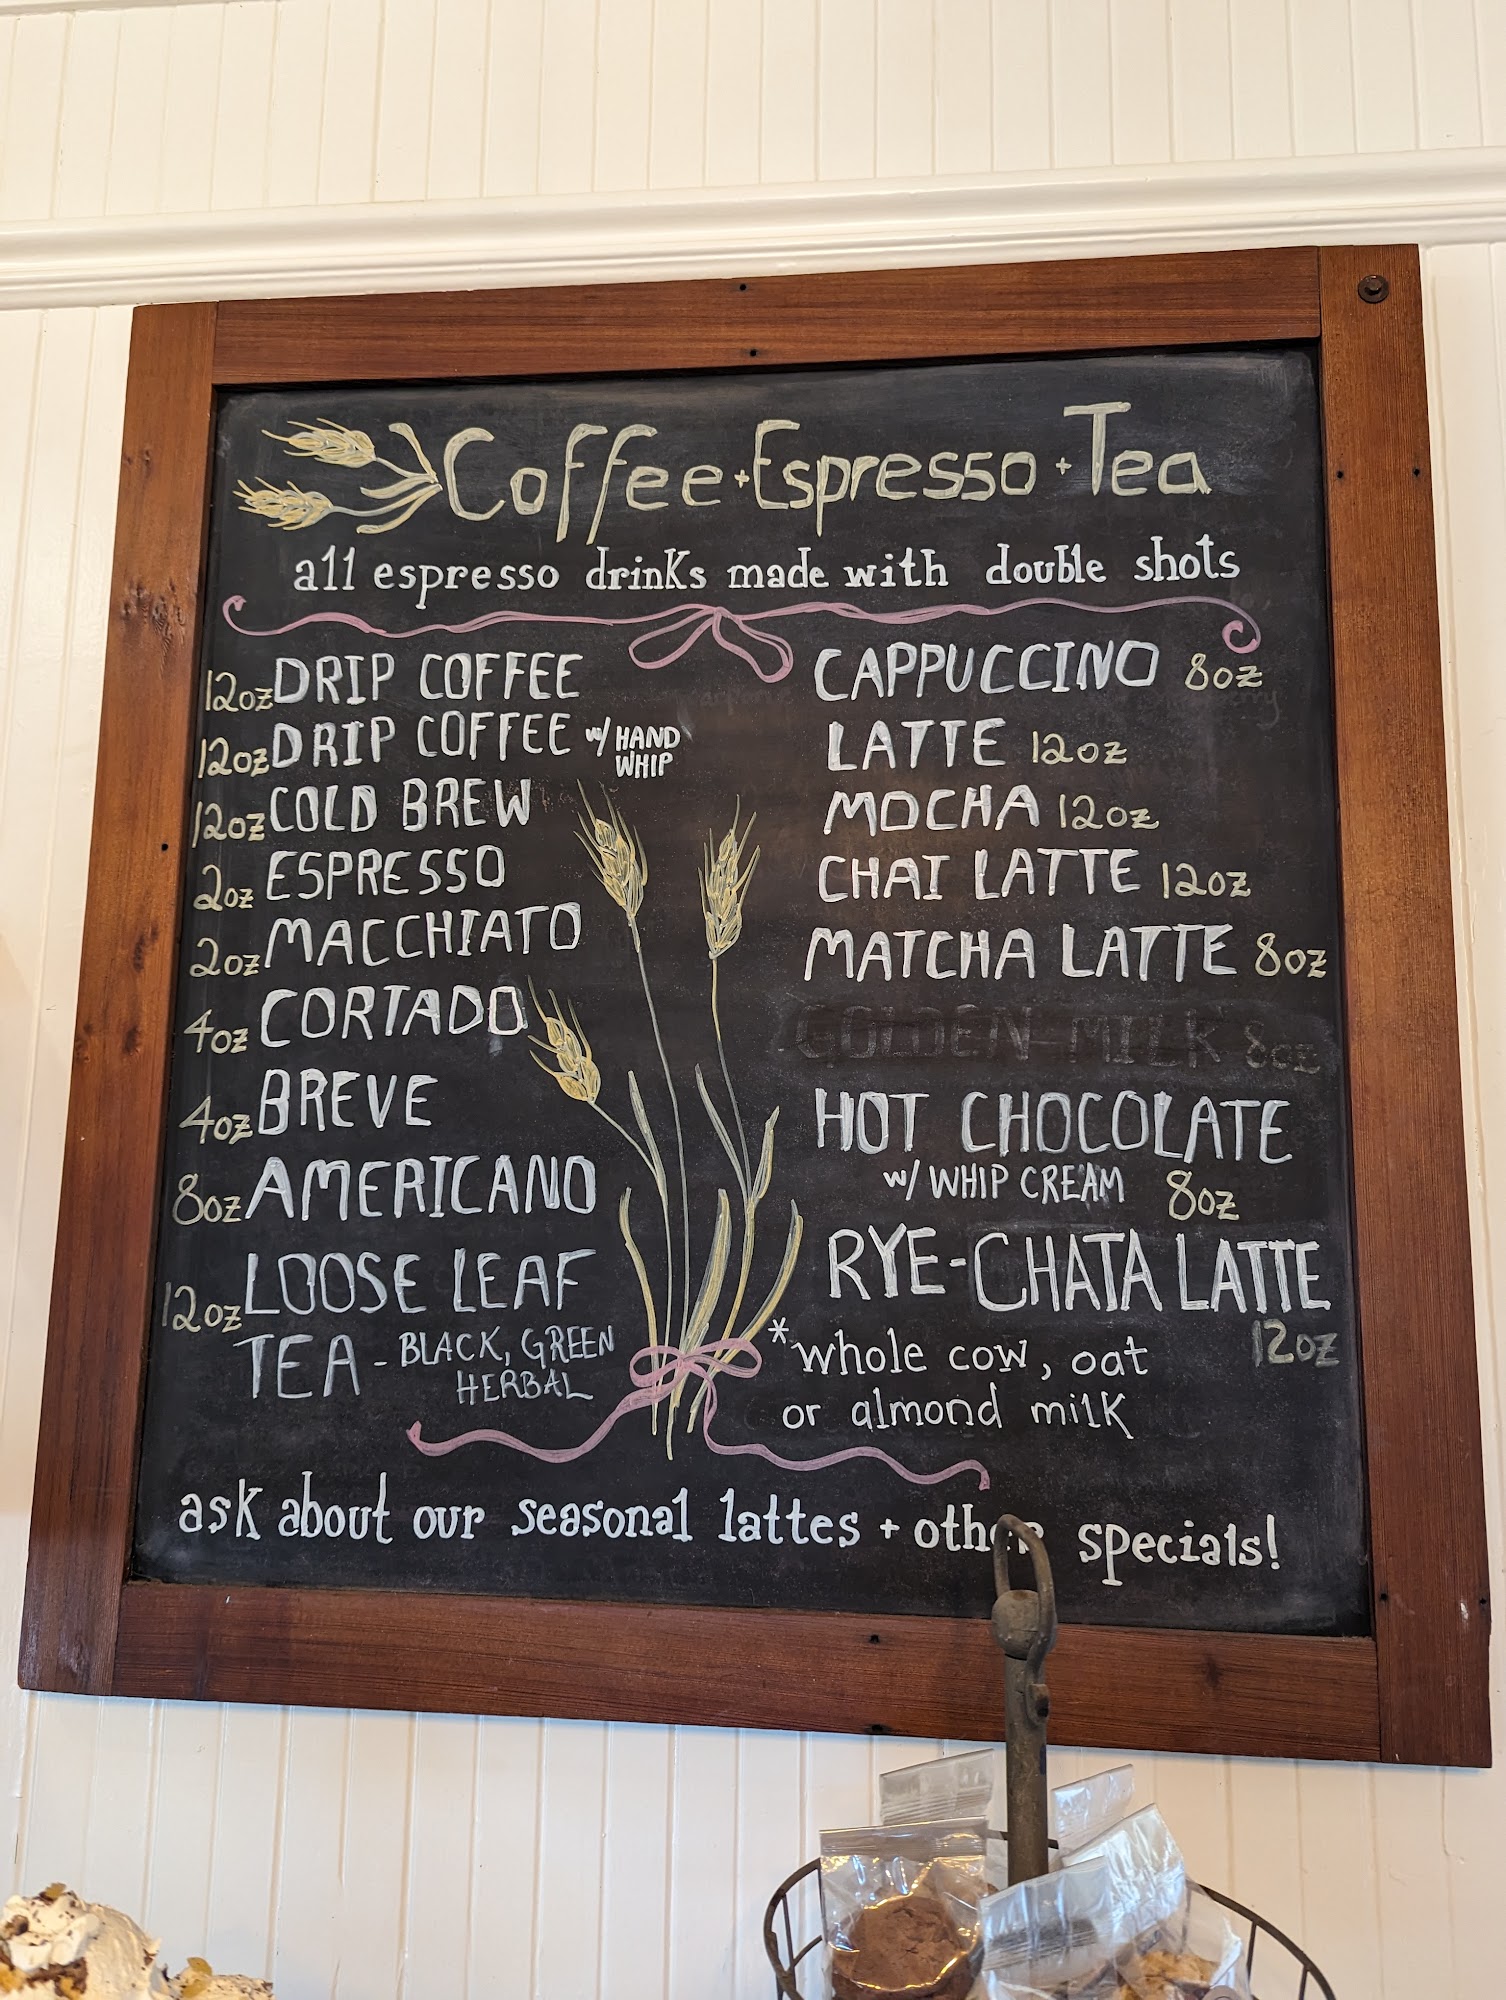 Coffee + Espresso + Tea
all espresso drinks made with double shots
12oz DRIP COFFEE
12oz DRIP COFFEE w/ HAND
WHIP
12oz COLD BREW
2oz ESPRESSO
2oz MACCHIATO
4oz CORTADO
4oz BREVE
8oz AMERICANO
12oz LOOSE LEAF
TEA - BLACK, GREEN
HERBAL
CAPPUCCINO 8oz
LATTE 12oz
MOCHA 12oz
CHAI LATTE 12oz
MATCHA LATTE 8oz
GOLDEN MILK 8oz
HOT CHOCOLATE
w/ WHIP CREAM 8oz
RYE-CHATA LATTE
12oz
*whole cow, oat
or almond milk
ask about our seasonal lattes + other specials!